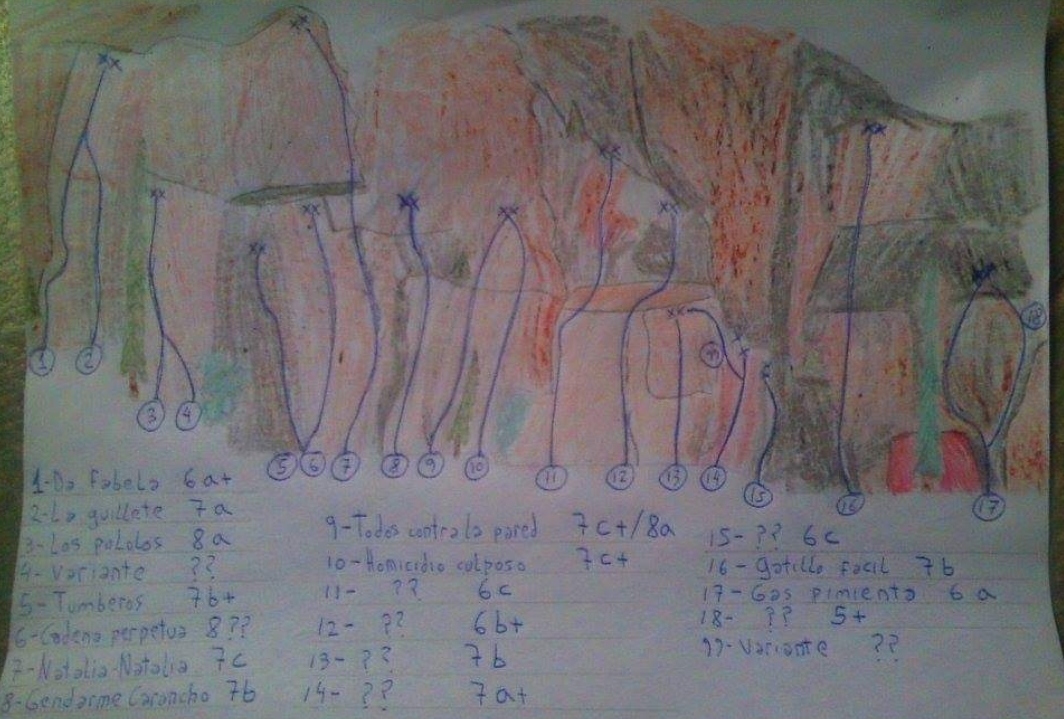 xx
xx
xx
xx
xx
xx
xx
xx
xx
xx
xx
xx
xx
1
2
3
4
5
6
7
8
9
10
11
12
13
14
15
16
17
18
1-Da Fabela 6a+
2-La guillete 7a
3-Los pololos 8a
4-Variante ??
5-Tumberos 7b+
6-Cadena perpetua 8??
7-Natalia-Natalia 7c
8-Gendarme Carancho 7b
9-Todos contra la pared 7c+/8a
10-Homicidio culposo 7c+
11- ?? 6c
12- ?? 6b+
13- ?? 7b
14- ?? 7a+
15- ?? 6c
16-gatillo facil 7b
17-Gas pimienta 6a
18- ?? 5+
19-Variante ??